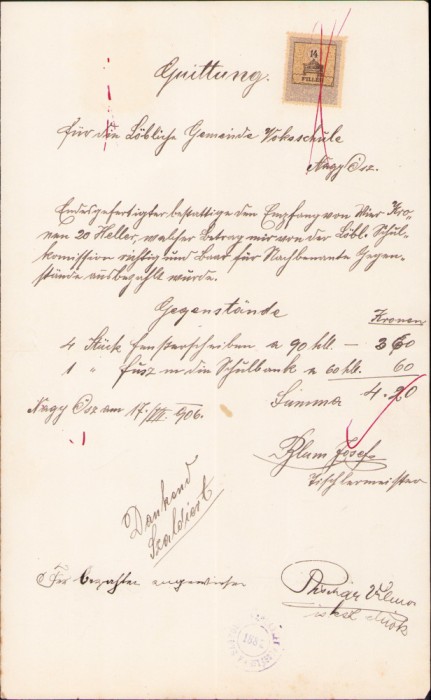 Quittung.
14
FILLER
für die Löbliche Gemeinde Volksschule
Nagy Ősz.
Endesgefertigter bestattige den Empfang von Vier Kro-
nen 20 Heller, welcher Betrag mir von der Löbl. Schul-
komission richtig und Baar für Nachbenante Gegen-
stände ausbezahlt wurde.
Gegenstände
Kronen
4 Stück Fensterscheiben a 90 hll. — 3 60
1 " Fusz in die Schulbank a 60 hll. 60
Summa 4.20
Nagy Ősz am 17/VII 906.
Blum Josef
Tischlermeister
Dankend
Szaldiert
Zur bezahlen angewiesen
Vilmos
isksz. elnök